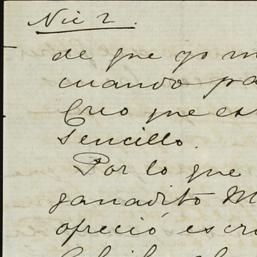 Nic 2.
de que yo
cuando
Creo que es
sencillo.
Por lo que
ganadito
ofreció